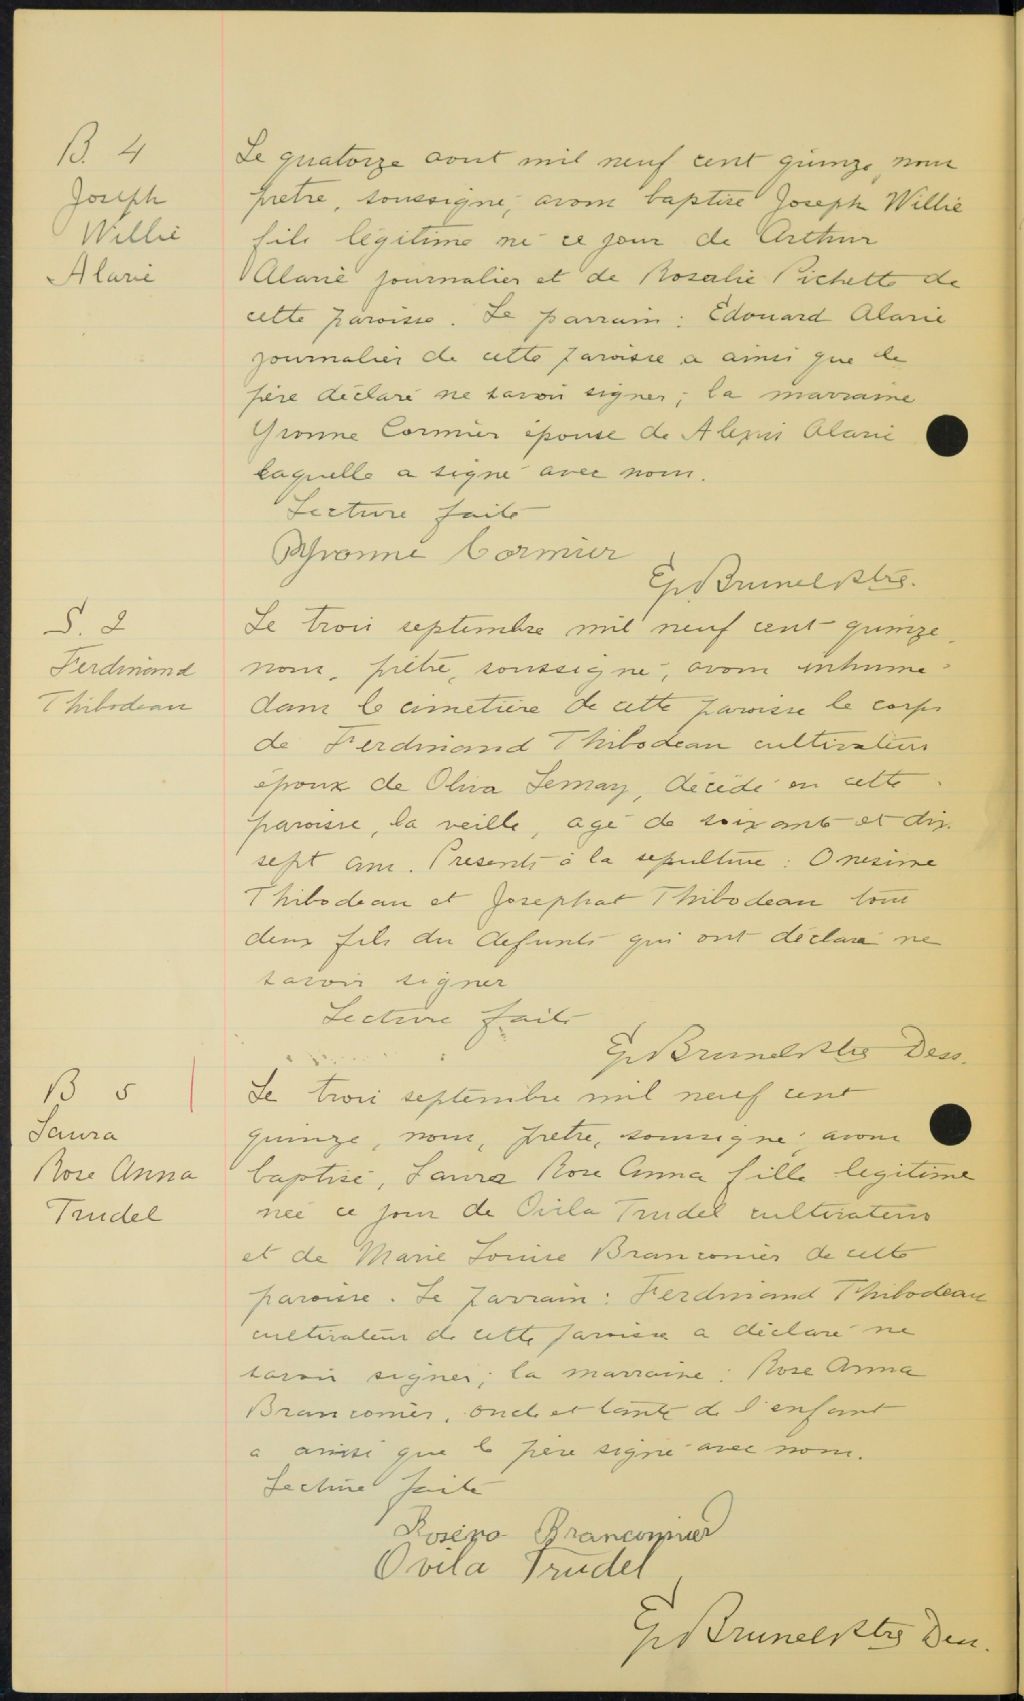 B. 4
Joseph
Willie
Alarie
Le quatorze aout mil neuf cent quinze, nous
pretre, soussigné, avons baptisé Joseph Willie
fils légitime né ce jour de Arthur
Alarie journalier et de Rosalie Pichette de
cette paroisse. Le parrain : Edouard Alarie
journalier de cette paroisse a ainsi que le
père déclaré ne savoir signer ; la marraine
Yvonne Cormier épouse de Alexis Alarie
laquelle a signé avec nous.
Lecture faite
Yvonne Cormier
Ep. Brunel Ptre.
S. 2
Ferdinand
Thibodeau
Le trois septembre mil neuf cent quinze,
nous, prêtre, soussigné, avons inhumé
dans le cimetière de cette paroisse le corps
de Ferdinand Thibodeau cultivateur
époux de Oliva Lemay, décédé en cette
paroisse, la veille, agé de soixante et dix
sept ans. Presents à la sepulture : Onesime
Thibodeau et Josephat Thibodeau tous
deux fils du defunts qui ont déclaré ne
savoir signer
Lecture faite
Ep. Brunel Ptre Dess.
B 5
Laura
Rose Anna
Trudel
Le trois septembre mil neuf cent
quinze, nous, pretre, soussigné, avons
baptisé, Laura Rose Anna fille legitime
née ce jour de Ovila Trudel cultivateur
et de Marie Louise Branconier de cette
paroisse. Le parrain : Ferdinand Thibodeau
cultivateur de cette paroisse a déclaré ne
savoir signer ; la marraine : Rose Anna
Branconier, oncle et tante de l'enfant
a ainsi que le père signé avec nous.
Lecture faite
Branconnier
Ovila Trudel
Ep. Brunel Ptre Dess.